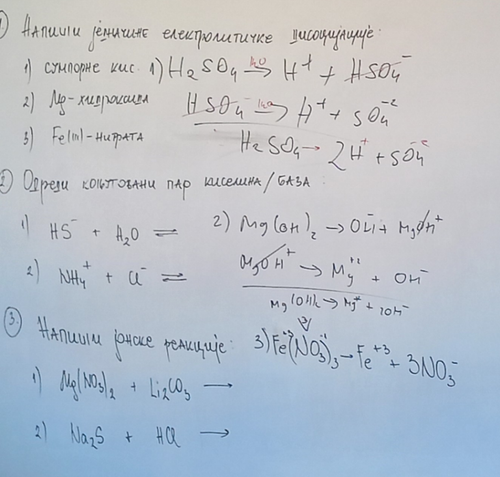 1) Напиши једначине електролитичке дисоцијације:
1) сумпорне кис. 1) H₂SO₄ →H₂O H⁺ + HSO₄⁻
2) Mg-хидроксида HSO₄⁻ →H₂O H⁺ + SO₄⁻²
3) Fe(III)-нитрата H₂SO₄ → 2H⁺ + SO₄⁻²
2) Одреди коњуговани пар киселина/база:
1) HS⁻ + H₂O ⇌ 2) Mg(OH)₂ → OH⁻ + MgOH⁺
2) NH₄⁺ + Cl⁻ ⇌ MgOH⁺ → Mg⁺² + OH⁻
Mg(OH)₂ → Mg⁺² + 2OH⁻
3. Напиши јонске реакције: 3) Fe⁺³(NO₃)₃⁻¹ → Fe⁺³ + 3NO₃⁻
1) Mg(NO₃)₂ + Li₂CO₃ →
2) Na₂S + HCl →